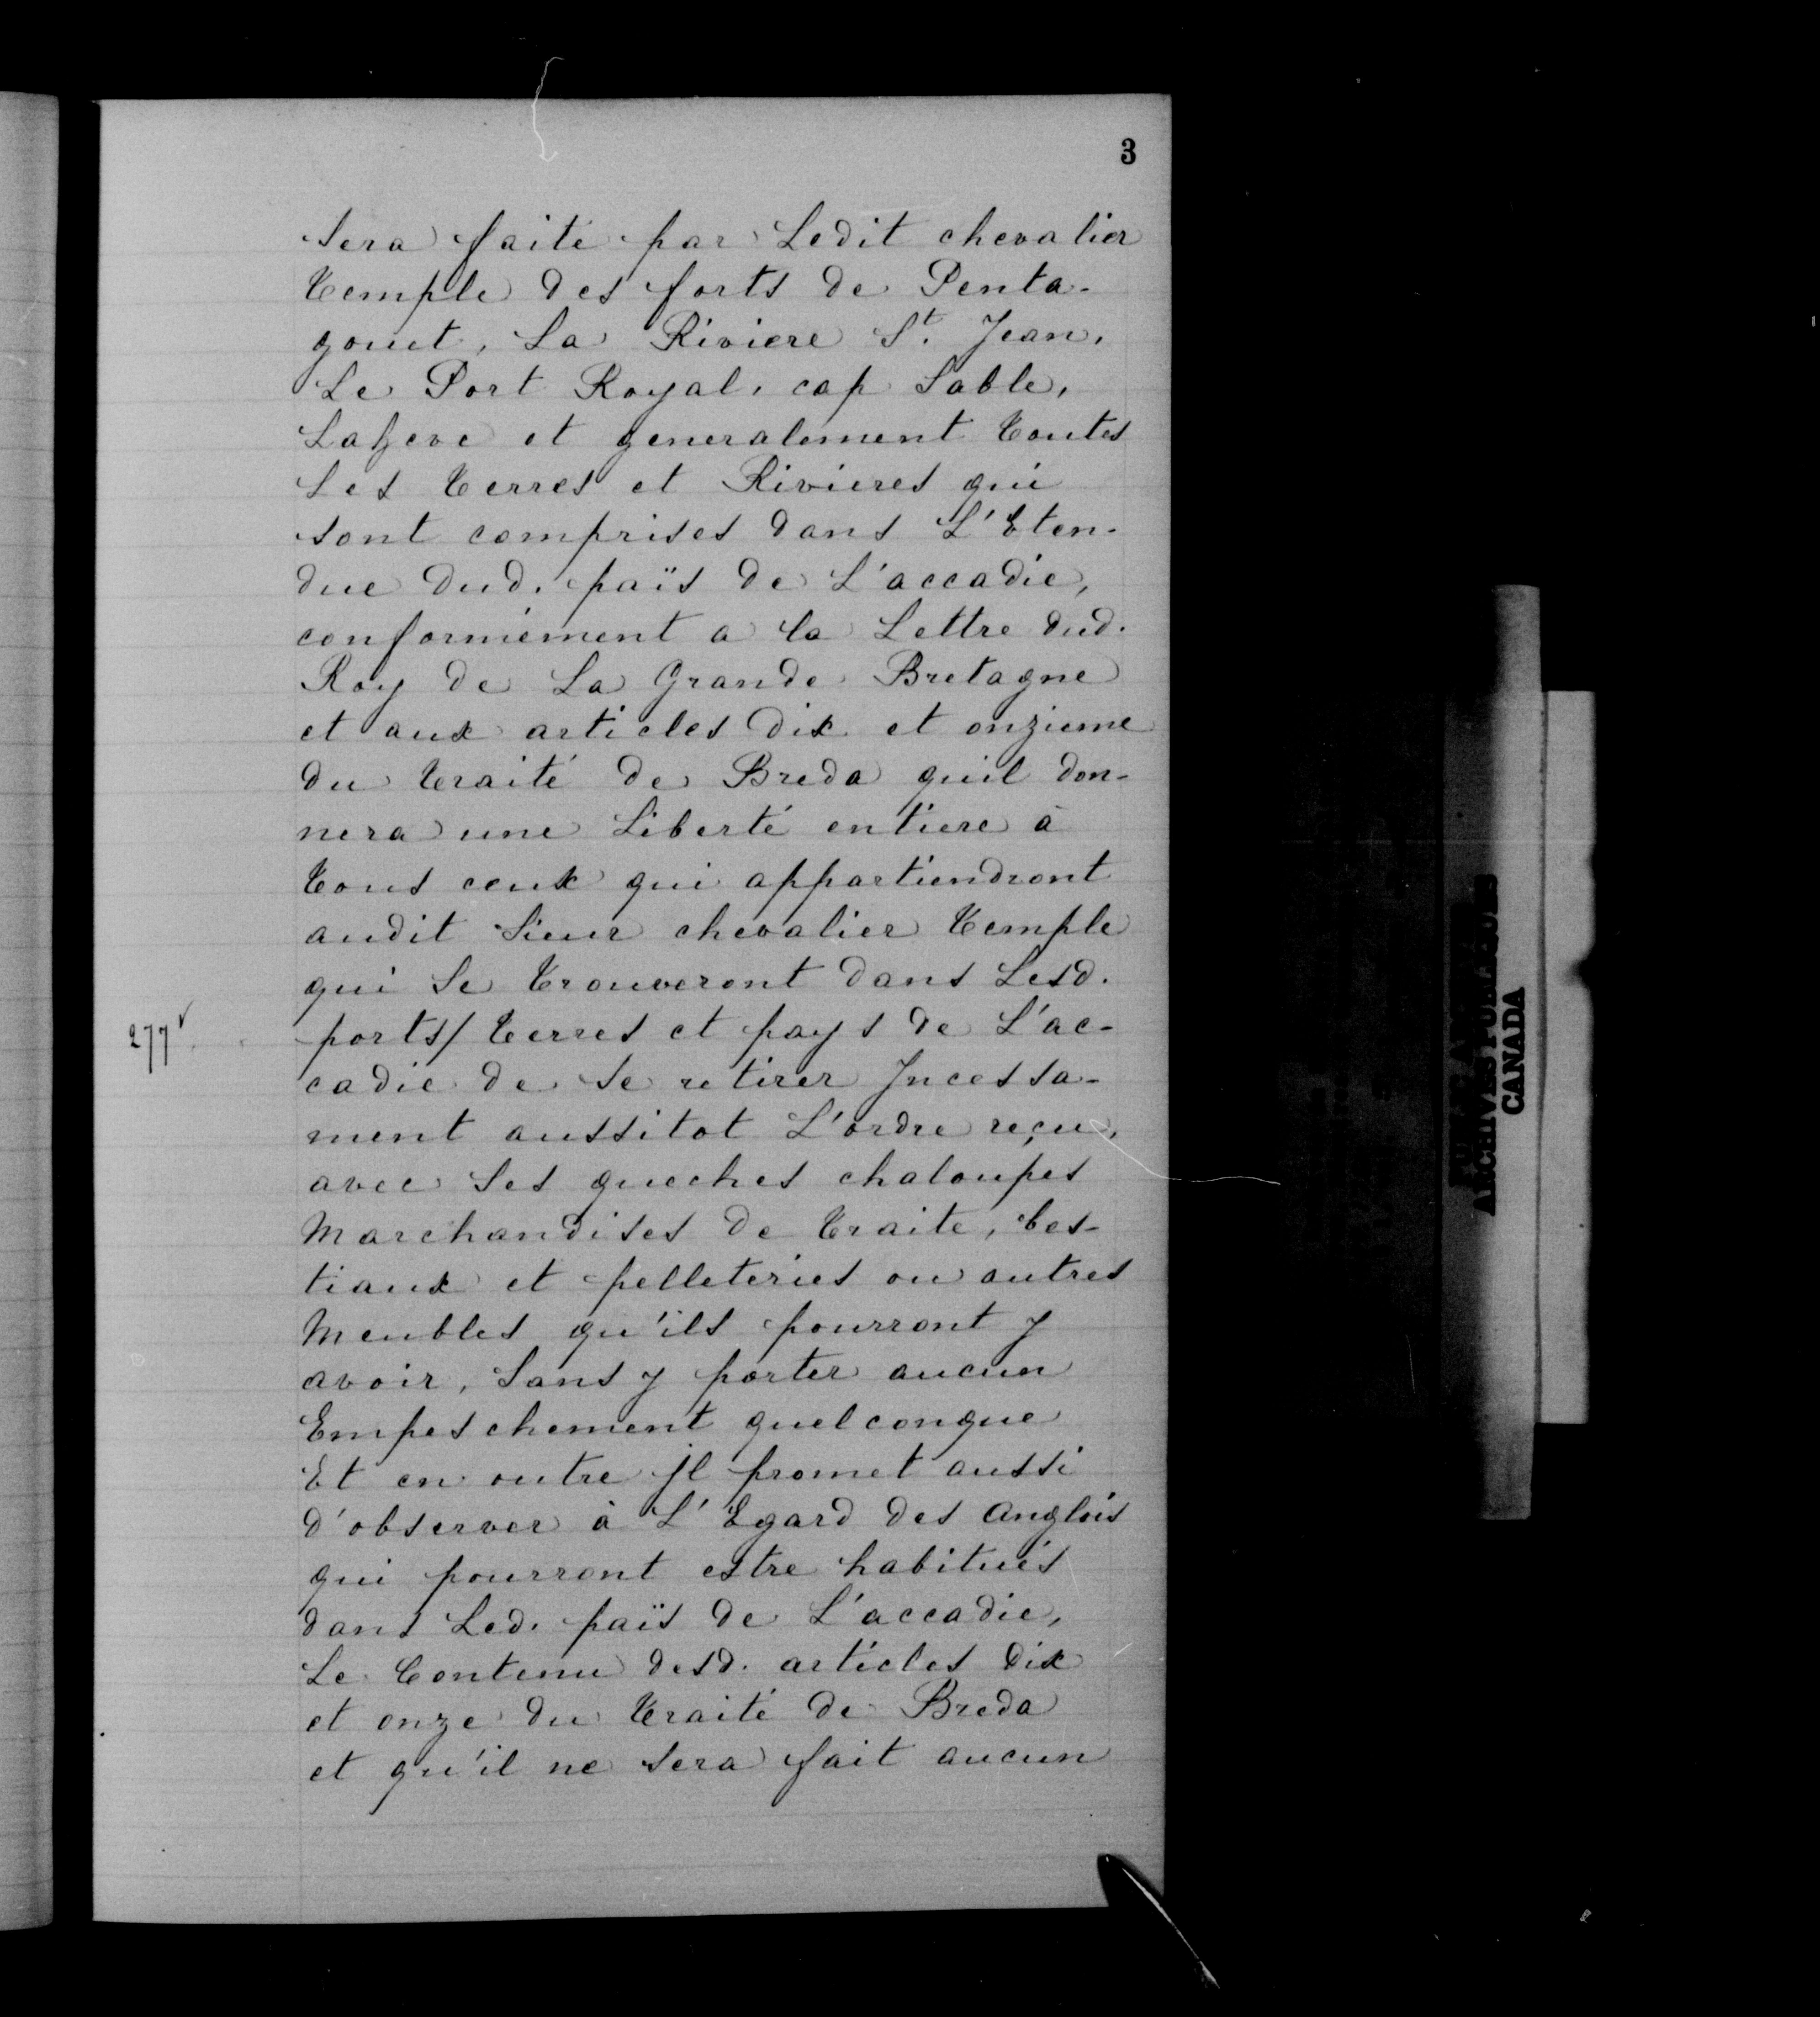 3
Sera faite par Ledit chevalier
Temple des forts de Penta-
gouet, La Riviere St. Jean,
Le Port Royal, cap Sable,
LaHeve et generalement Toutes
Les Terres et Rivieres qui
sont comprises dans L'Eten-
due dud. païs de L'accadie,
conformément a la Lettre dud.
Roy de La Grande Bretagne
et aux articles Dix et onzieme
du Traité de Breda quil don-
nera une Liberté entiere à
Tous ceux qui appartiendront
audit Sieur chevalier Temple
qui Se Trouveront dans Lesd.
277v ports/ Terres et pays de L'ac-
cadie de Se retirer Incessa-
ment aussitot L'ordre reçu,
avec Ses queches chaloupes
Marchandises de Traite, bes-
tiaux et pelleteries ou autres
Meubles qu'ils pourront y
avoir, Sans y porter aucun
Empeschement quelconque
Et en outre Il promet aussi
d'observer à L'Egard des Anglois
qui pourront estre habitués
dans Led. païs de L'accadie,
Le Contenu desd. articles Dix
et onze du Traité de Breda
et qu'il ne Sera fait aucun
ARCHIVES PUBLIQUES
CANADA